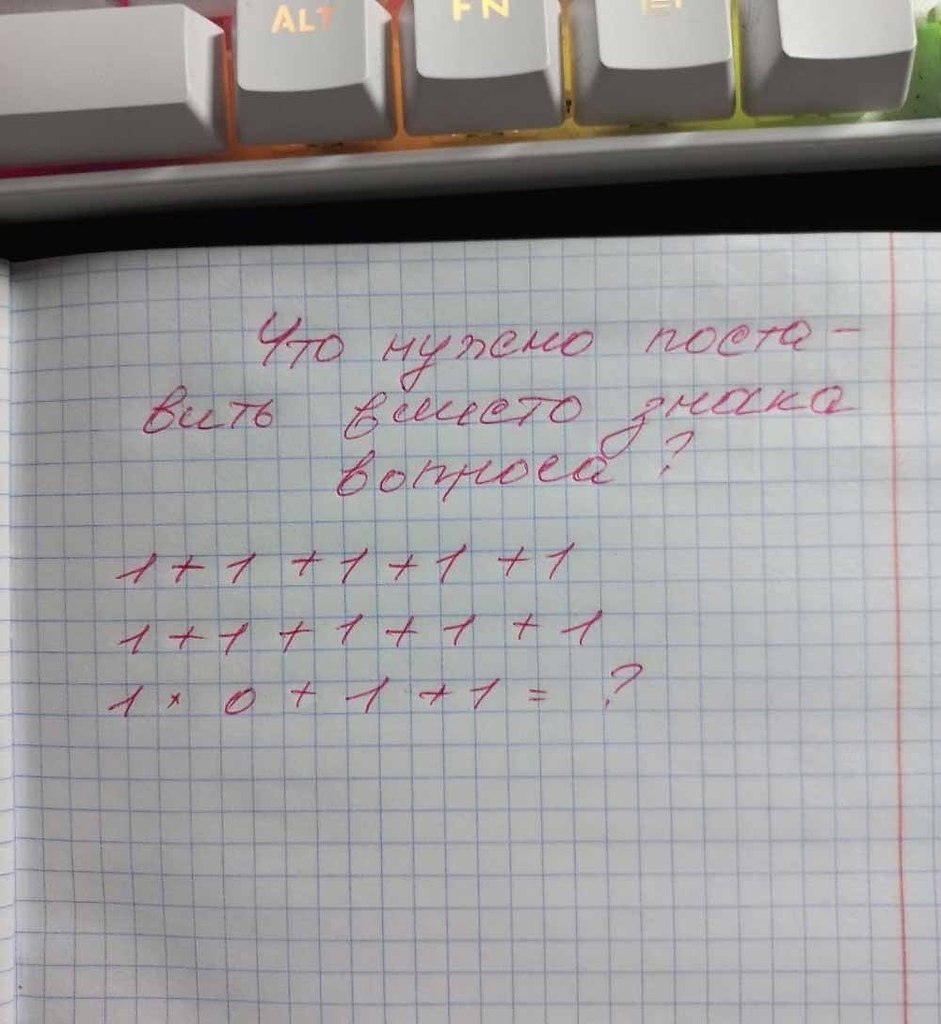 ALT FN
Что нужно поста-
вить вместо знака
вопроса?
1 + 1 + 1 + 1 + 1
1 + 1 + 1 + 1 + 1
1 × 0 + 1 + 1 = ?